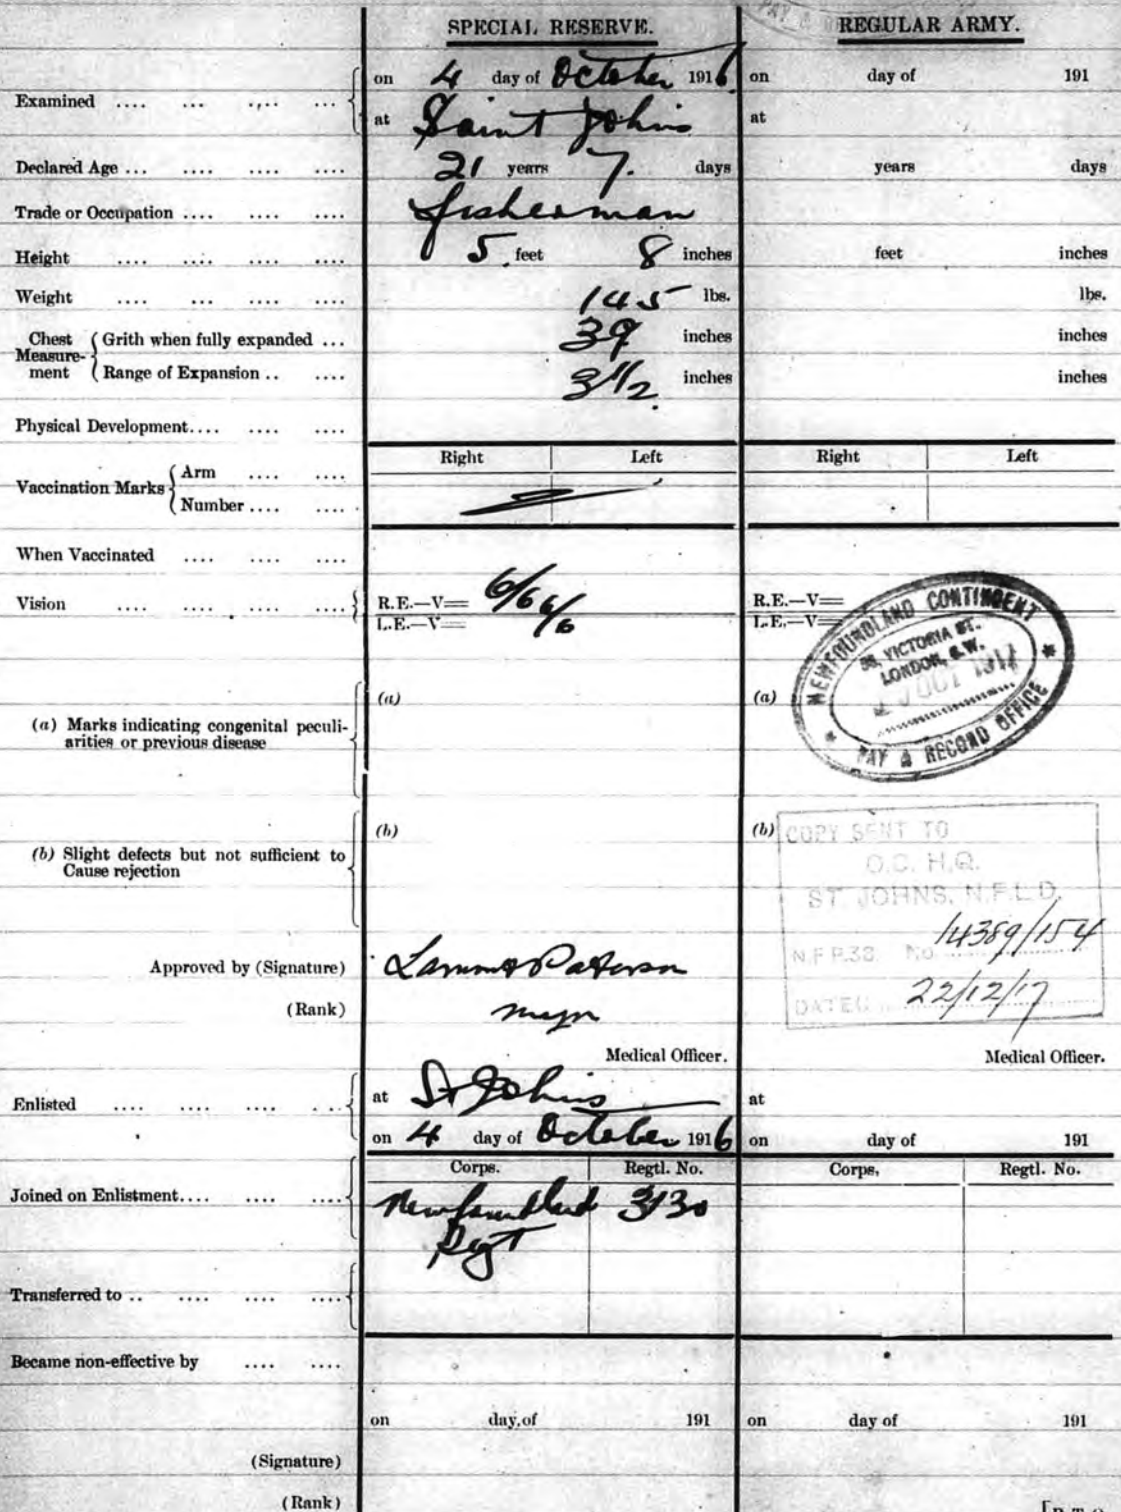 SPECIAL RESERVE. REGULAR ARMY.
Examined .... ... .... ... on 4 day of October 1916 on day of 191
at Saint Johns at
Declared Age ... .... .... .... 21 years 7. days years days
Trade or Occupation .... .... .... fisherman
Height .... .... .... .... 5 feet 8 inches feet inches
Weight .... ... .... .... 145 lbs. lbs.
Chest Measure-ment Grith when fully expanded ... 39 inches inches
Range of Expansion .. .... 3 1/2 inches inches
Physical Development.... .... ....
Right Left Right Left
Vaccination Marks Arm .... ....
Number .... ....
When Vaccinated .... .... ....
Vision .... .... .... .... R.E.—V= 6/6 R.E.—V=
L.E.—V= 6/6 L.E.—V=
NEWFOUNDLAND CONTINGENT
58, VICTORIA ST.
LONDON, S.W.
OCT 1917
PAY & RECORD OFFICE
(a) Marks indicating congenital peculi- (a) (a)
arities or previous disease
(b) Slight defects but not sufficient to (b) (b)
Cause rejection
COPY SENT TO
O.C. H.Q.
ST. JOHNS, N.F.L.D.
N.F.P.38. No 14389/154
DATED 22/12/17
Approved by (Signature) Paterson
(Rank) Major
Medical Officer. Medical Officer.
Enlisted .... .... .... .... at St Johns at
on 4 day of October 1916 on day of 191
Corps. Regtl. No. Corps, Regtl. No.
Joined on Enlistment.... .... .... Newfoundland 3130
Regt
Transferred to .. .... .... ....
Became non-effective by .... ....
on day of 191 on day of 191
(Signature)
(Rank)
[P.T.O.